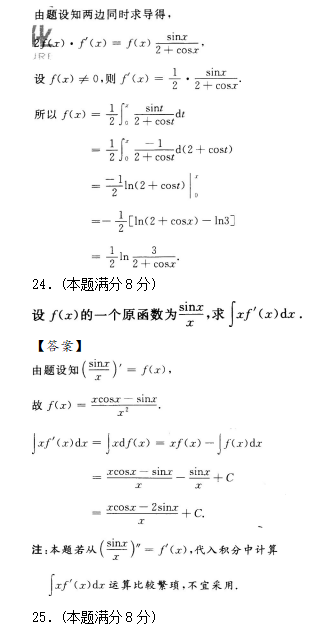 由题设知两边同时求导得，
2f(x)·f′(x) = f(x) sinx/(2+cosx),
设 f(x) ≠ 0,则 f′(x) = 1/2 · sinx/(2+cosx).
所以 f(x) = 1/2 ∫₀ˣ sint/(2+cost) dt
= 1/2 ∫₀ˣ −1/(2+cost) d(2+cost)
= −1/2 ln(2+cost) |₀ˣ
= −1/2 [ln(2+cosx) − ln3]
= 1/2 ln 3/(2+cosx).
24．(本题满分8分)
设 f(x)的一个原函数为 sinx/x ,求 ∫xf′(x)dx .
【答案】
由题设知(sinx/x)′ = f(x),
故 f(x) = (xcosx − sinx)/x².
∫xf′(x)dx = ∫xdf(x) = xf(x) − ∫f(x)dx
= (xcosx − sinx)/x − sinx/x + C
= (xcosx − 2sinx)/x + C.
注:本题若从(sinx/x)″ = f′(x),代入积分中计算
∫xf′(x)dx 运算比较繁琐,不宜采用.
25．(本题满分8分)